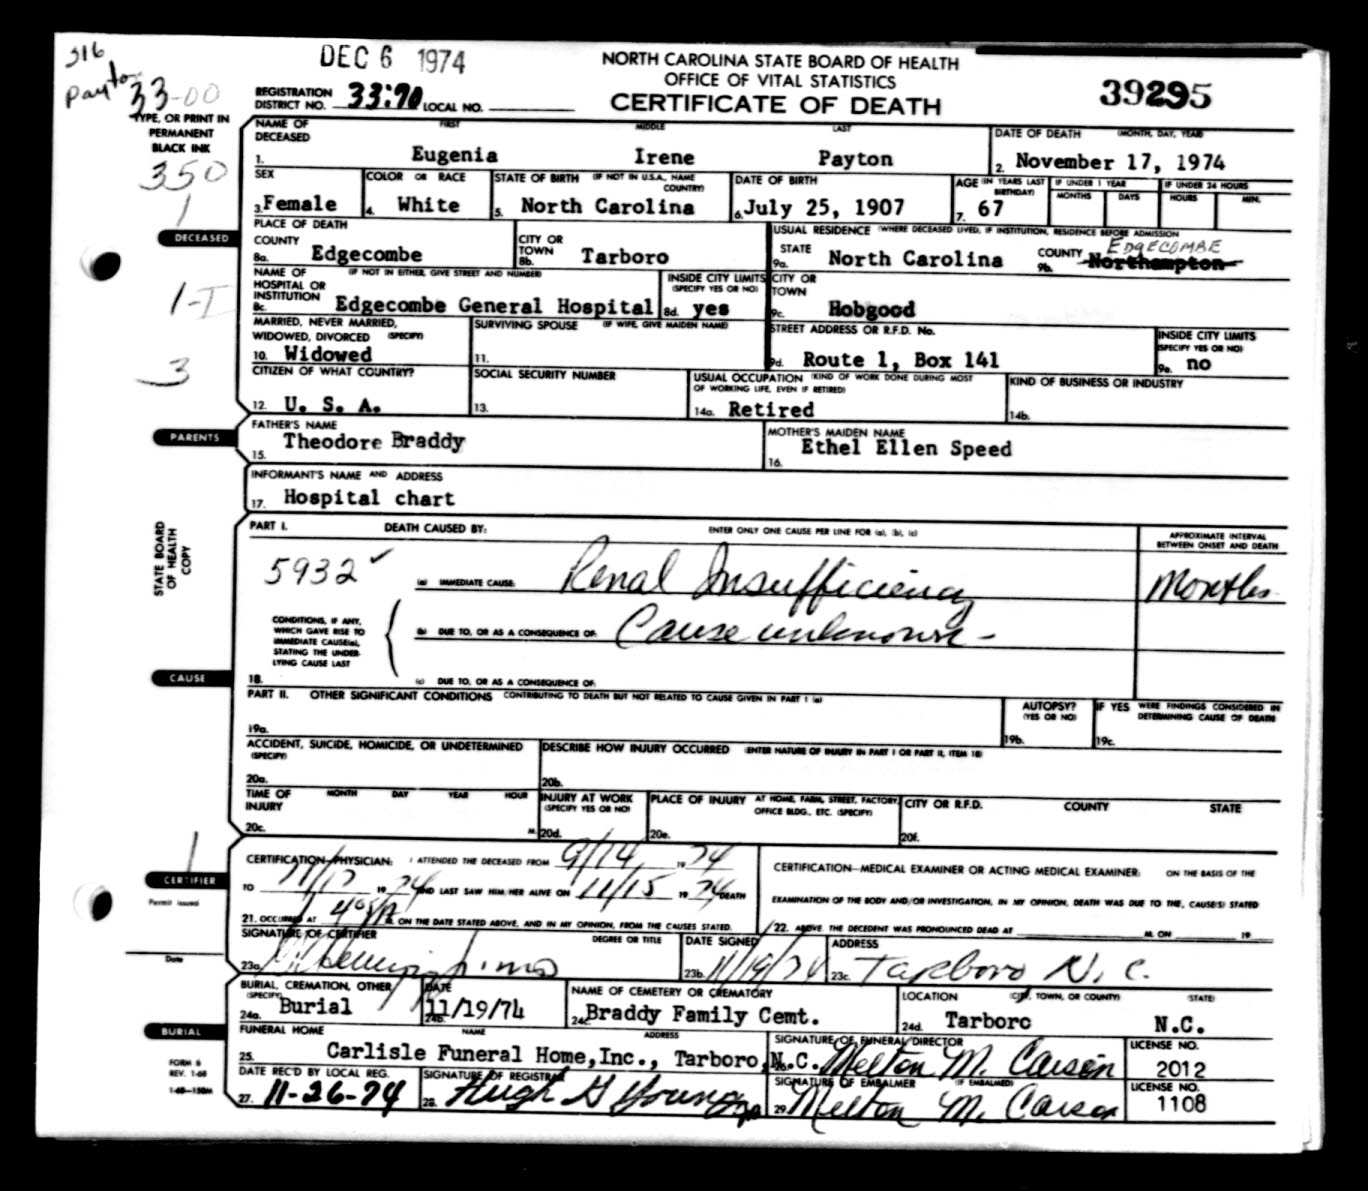 316
Payton
33-00
DEC 6 1974
NORTH CAROLINA STATE BOARD OF HEALTH
OFFICE OF VITAL STATISTICS
CERTIFICATE OF DEATH
39295
REGISTRATION DISTRICT NO. 33:70 LOCAL NO.
TYPE, OR PRINT IN PERMANENT BLACK INK
350
1
DECEASED
1-I
3
NAME OF DECEASED FIRST MIDDLE LAST
1. Eugenia Irene Payton
DATE OF DEATH (MONTH, DAY, YEAR)
2. November 17, 1974
SEX
3. Female
COLOR OR RACE
4. White
STATE OF BIRTH (IF NOT IN U.S.A., NAME COUNTRY)
5. North Carolina
DATE OF BIRTH
6. July 25, 1907
AGE (IN YEARS LAST BIRTHDAY)
7. 67
IF UNDER 1 YEAR
MONTHS DAYS
IF UNDER 24 HOURS
HOURS MIN.
PLACE OF DEATH
COUNTY
8a. Edgecombe
CITY OR TOWN
8b. Tarboro
USUAL RESIDENCE (WHERE DECEASED LIVED, IF INSTITUTION, RESIDENCE BEFORE ADMISSION
STATE
9a. North Carolina
COUNTY EDGECOMBE
9b. Northampton
NAME OF HOSPITAL OR INSTITUTION (IF NOT IN EITHER, GIVE STREET AND NUMBER)
8c. Edgecombe General Hospital
INSIDE CITY LIMITS (SPECIFY YES OR NO)
8d. yes
CITY OR TOWN
9c. Hobgood
MARRIED, NEVER MARRIED, WIDOWED, DIVORCED (SPECIFY)
10. Widowed
SURVIVING SPOUSE (IF WIFE, GIVE MAIDEN NAME)
11.
STREET ADDRESS OR R.F.D. No.
9d. Route 1, Box 141
INSIDE CITY LIMITS (SPECIFY YES OR NO)
9e. no
CITIZEN OF WHAT COUNTRY?
12. U. S. A.
SOCIAL SECURITY NUMBER
13.
USUAL OCCUPATION (KIND OF WORK DONE DURING MOST OF WORKING LIFE, EVEN IF RETIRED)
14a. Retired
KIND OF BUSINESS OR INDUSTRY
14b.
PARENTS
FATHER'S NAME
15. Theodore Braddy
MOTHER'S MAIDEN NAME
16. Ethel Ellen Speed
INFORMANT'S NAME AND ADDRESS
17. Hospital chart
STATE BOARD OF HEALTH COPY
PART I. DEATH CAUSED BY: ENTER ONLY ONE CAUSE PER LINE FOR (a), (b), (c)
APPROXIMATE INTERVAL BETWEEN ONSET AND DEATH
5932 ✓
(a) IMMEDIATE CAUSE: Renal Insufficiency Months
CONDITIONS, IF ANY, WHICH GAVE RISE TO IMMEDIATE CAUSE(a), STATING THE UNDERLYING CAUSE LAST
(b) DUE TO, OR AS A CONSEQUENCE OF: Cause unknown -
CAUSE
18. (c) DUE TO, OR AS A CONSEQUENCE OF:
PART II. OTHER SIGNIFICANT CONDITIONS CONTRIBUTING TO DEATH BUT NOT RELATED TO CAUSE GIVEN IN PART I (a)
19a.
AUTOPSY? (YES OR NO)
19b.
IF YES WERE FINDINGS CONSIDERED IN DETERMINING CAUSE OF DEATH
19c.
ACCIDENT, SUICIDE, HOMICIDE, OR UNDETERMINED (SPECIFY)
20a.
DESCRIBE HOW INJURY OCCURRED (ENTER NATURE OF INJURY IN PART I OR PART II, ITEM 18)
20b.
TIME OF INJURY MONTH DAY YEAR HOUR
20c. M.
INJURY AT WORK (SPECIFY YES OR NO)
20d.
PLACE OF INJURY AT HOME, FARM, STREET, FACTORY, OFFICE BLDG., ETC. (SPECIFY)
20e.
CITY OR R.F.D. COUNTY STATE
20f.
1
CERTIFIER
Permit issued
Date
CERTIFICATION—PHYSICIAN: I ATTENDED THE DECEASED FROM 9/14, 1974
TO 11/17 1974 AND LAST SAW HIM/HER ALIVE ON 11/15 1974 DEATH
21. OCCURRED AT 405 A M. ON THE DATE STATED ABOVE, AND IN MY OPINION, FROM THE CAUSES STATED.
CERTIFICATION—MEDICAL EXAMINER OR ACTING MEDICAL EXAMINER: ON THE BASIS OF THE
EXAMINATION OF THE BODY AND/OR INVESTIGATION, IN MY OPINION, DEATH WAS DUE TO THE, CAUSE(S) STATED
22. ABOVE. THE DECEDENT WAS PRONOUNCED DEAD AT M. ON 19
SIGNATURE OF CERTIFIER DEGREE OR TITLE
23a.
DATE SIGNED
23b. 11/19/74
ADDRESS
23c. Tarboro N. C.
BURIAL, CREMATION, OTHER (SPECIFY)
24a. Burial
DATE
24b. 11/19/74
NAME OF CEMETERY OR CREMATORY
24c. Braddy Family Cemt.
LOCATION (CITY, TOWN, OR COUNTY) (STATE)
24d. Tarboro N.C.
BURIAL
FORM 8
REV. 1-68
1-68—150M
FUNERAL HOME NAME ADDRESS
25. Carlisle Funeral Home, Inc., Tarboro, N.C.
SIGNATURE OF FUNERAL DIRECTOR
26. Melton M. Carson
LICENSE NO.
2012
DATE REC'D BY LOCAL REG.
27. 11-26-74
SIGNATURE OF REGISTRAR
28. Hugh G Young
SIGNATURE OF EMBALMER (IF EMBALMED)
29. Melton M. Carson
LICENSE NO.
1108